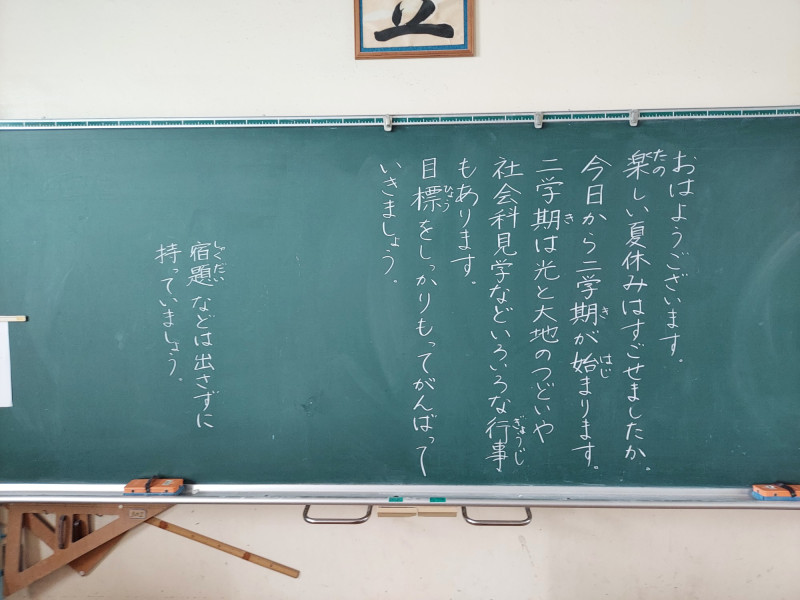 立
おはようございます。
楽しい夏休みはすごせましたか。
たの
今日から二学期が始まります。
き
はじ
二学期は光と大地のつどいや
き
社会科見学などいろいろな行事
ぎょうじ
もあります。
目標をしっかりもってがんばって
ひょう
いきましょう。
宿題などは出さずに
しゅくだい
持っていましょう。